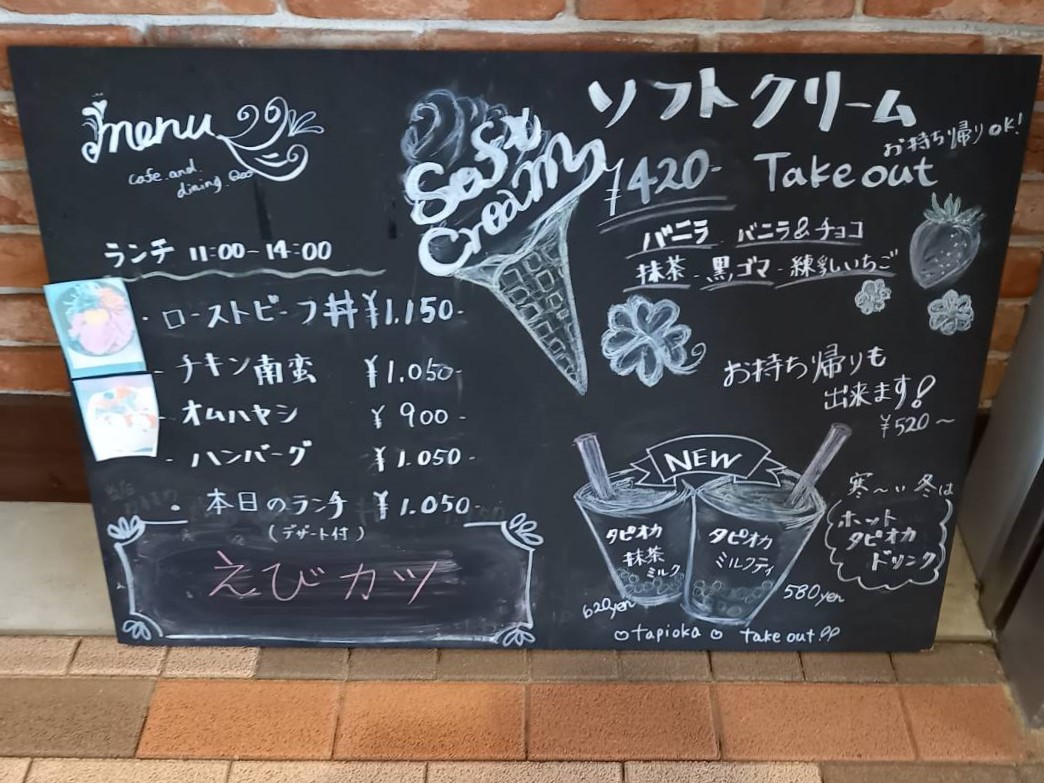 menu
cafe.and.
dining.
ランチ 11:00-14:00
・ローストビーフ丼 ¥1.150-
- チキン南蛮 ¥1.050-
- オムハヤシ ¥ 900-
- ハンバーグ ¥1.050-
・本日のランチ ¥1.050-
(デザート付)
えびカツ
Soft
Cream
ソフトクリーム
お持ち帰りOK!
¥420- Take out
バニラ バニラ&チョコ
抹茶-黒ゴマ-練乳いちご
お持ち帰りも
出来ます!
¥520～
NEW
タピオカ
抹茶
ミルク
620yen
タピオカ
ミルクティ
580yen
寒～い冬は
ホット
タピオカ
ドリンク
tapioka take out